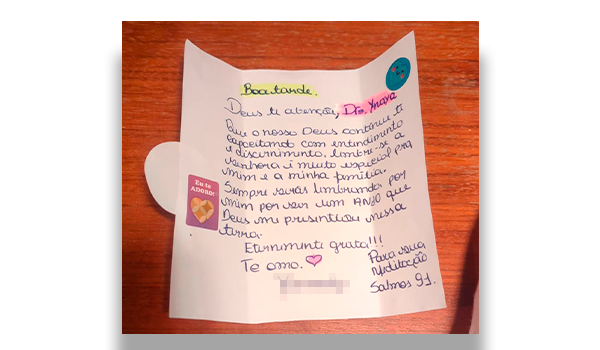 Boa tarde.
Deus te abençoe, Dra. Ynara
Que o nosso Deus continue ti
capacitando com entendimento
e discernimento, lembre-se a
senhora é muito especial pra
mim e a minha família.
Sempre serás lembrando por
mim por ser um ANJO que
Deus me presenteou nessa
terra.
Eternimente grata!!!
Te amo.
Para seua
Meditação
Salmos 91.
Eu te
ADORO!